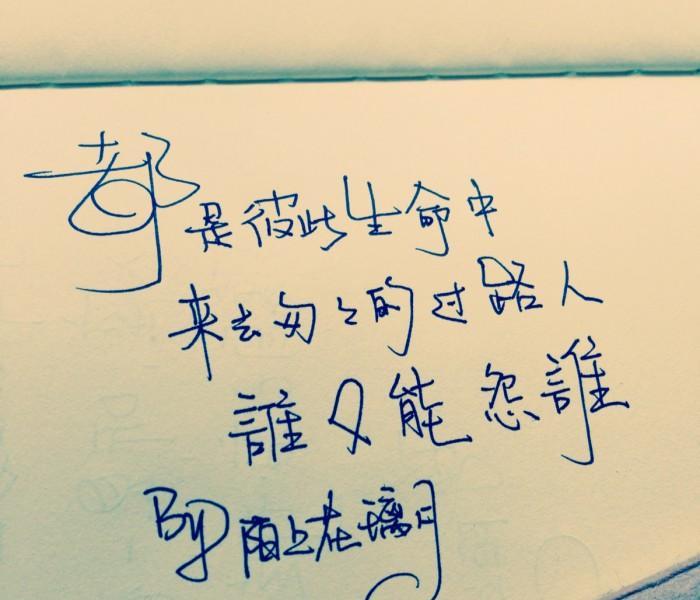 都是彼此生命中
来去匆々的过路人
誰又能怨誰
By陌上在璃月